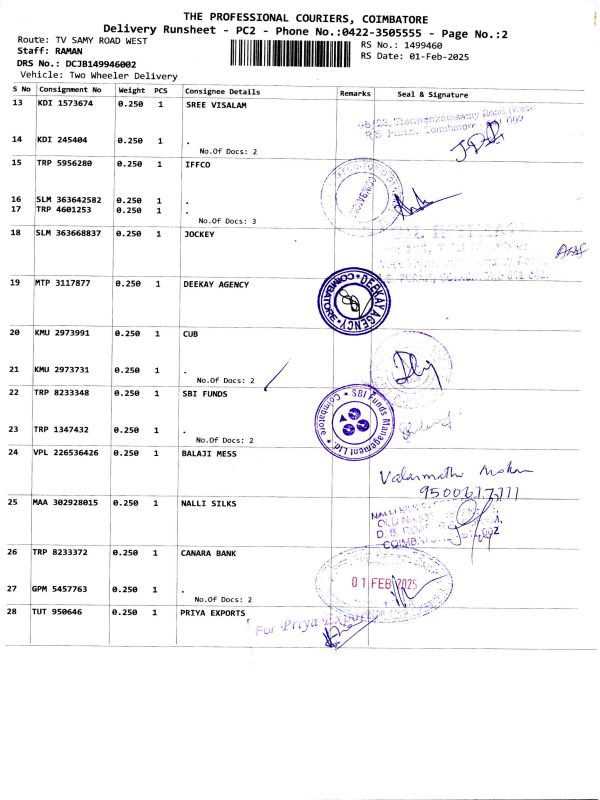 THE PROFESSIONAL COURIERS, COIMBATORE
Delivery Runsheet - PC2 - Phone No.:0422-3505555 - Page No.:2
Route: TV SAMY ROAD WEST
RS No.: 1499460
Staff: RAMAN
RS Date: 01-Feb-2025
DRS No.: DCJB149946002
Vehicle: Two Wheeler Delivery
S No Consignment No Weight PCS Consignee Details Remarks Seal & Signature
13 KDI 1573674 0.250 1 SREE VISALAM
14 KDI 245404 0.250 1 .
No.Of Docs: 2
15 TRP 5956280 0.250 1 IFFCO
COIMBATORE
16 SLM 363642582 0.250 1 .
17 TRP 4601253 0.250 1 .
No.Of Docs: 3
18 SLM 363668837 0.250 1 JOCKEY
19 MTP 3117877 0.250 1 DEEKAY AGENCY
DEEKAY AGENCY * COIMBATORE *
20 KMU 2973991 0.250 1 CUB
21 KMU 2973731 0.250 1 .
No.Of Docs: 2
22 TRP 8233348 0.250 1 SBI FUNDS
SBI Funds Management Ltd. * Coimbatore *
23 TRP 1347432 0.250 1 .
No.Of Docs: 2
24 VPL 226536426 0.250 1 BALAJI MESS
Valarmathi Mohan
25 MAA 302928015 0.250 1 NALLI SILKS
26 TRP 8233372 0.250 1 CANARA BANK
01 FEB 2025
27 GPM 5457763 0.250 1 .
No.Of Docs: 2
28 TUT 950646 0.250 1 PRIYA EXPORTS
For Priya Exports